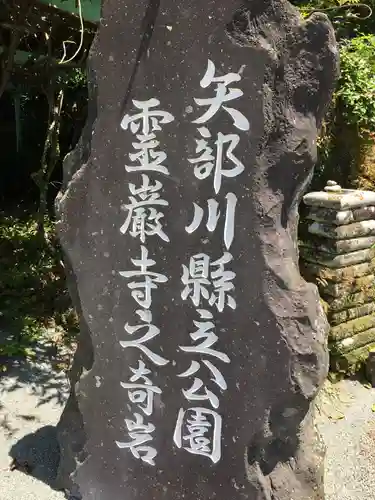 矢部川県立公園
霊巖寺之奇岩